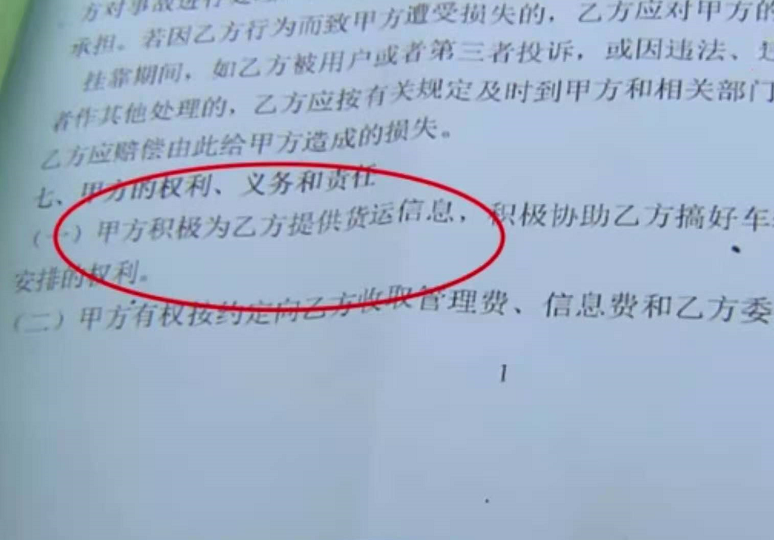 方对事故进行处理
承担。若因乙方行为而致甲方遭受损失的，乙方应对甲方的
挂靠期间，如乙方被用户或者第三者投诉，或因违法、
者作其他处理的，乙方应按有关规定及时到甲方和相关部门
乙方应赔偿由此给甲方造成的损失。
七、甲方的权利、义务和责任
（一）甲方积极为乙方提供货运信息，积极协助乙方搞好车
安排的权利。
（二）甲方有权按约定向乙方收取管理费、信息费和乙方委
1